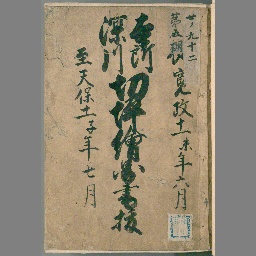 廿ノ九十二
第五期
寛政十一未年六月
本所
深川
切坪繪図書抜
至天保十一子年七月